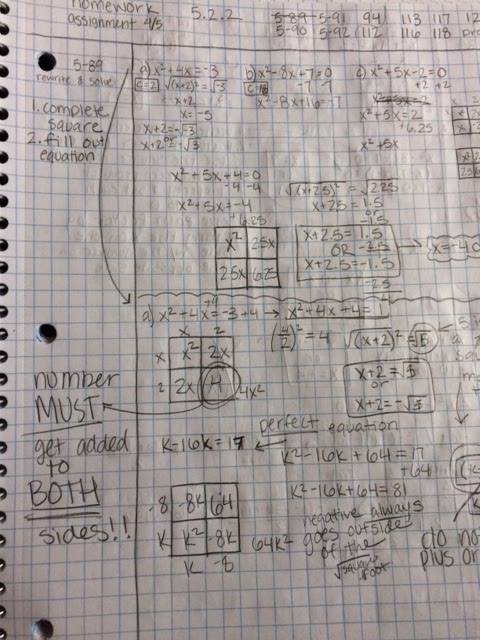 homework
assignment 4/5
5.2.2
5-89 5-91 94 113 117 12
5-90 5-92 112 116 118
5-89
rewrite & solve
1. complete
square
2. fill out
equation
a) x²+4x=-3
c=2 √(x+2)²=√-3
x+2
x=-5
x+2=-√-3
or
x+2=-√3
b) x²-8x+7=0
-7 -7
x²-8x+16=-7
c) x²+5x-2=0
+2 +2
x²+5x=2
x²+5x=2
+6.25
x²+5x
x²+5x+4=0
-4 -4
x²+5x=-4
+6.25
x² 2.5x
2.5x 6.25
√(x+2.5)²=√2.25
x+2.5=1.5
or
-1.5
x+2.5=1.5
OR -2.5
x+2.5=-1.5
-2.5
a) x²-4x=-3+4 → x²+4x+4=1
+4
x 2
x x² 2x
2 2x 4 4x²
(4/2)²=4
√(x+2)²=√5
x+2=√5
or
x+2=-√5
number
MUST
get added
to
BOTH
sides!!
perfect equation
k-16k=17
k²-16k+64=17
+64
k²-16k+64=81
-8 -8k 64
k k² -8k 64k²
k -8
negative always
goes outside
of the
square
root
do no
plus or